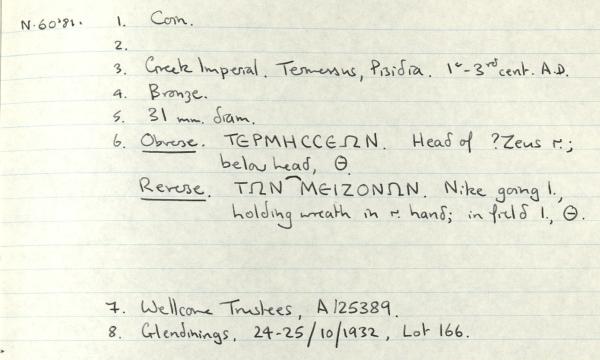 N.60'82.
1. Coin.
2.
3. Greek Imperial. Termessus, Pisidia. 1st-3rd cent. A.D.
4. Bronze.
5. 31 mm. diam.
6. Obverse. ΤЄΡΜΗϹϹЄΩΝ. Head of ?Zeus r.;
below head, Θ
Reverse. ΤΩΝ ΜЄΙΖΟΝΩΝ. Nike going l.,
holding wreath in r. hand; in field l., Θ.
7. Wellcome Trustees, A125389.
8. Glendinings, 24-25/10/1932, Lot 166.